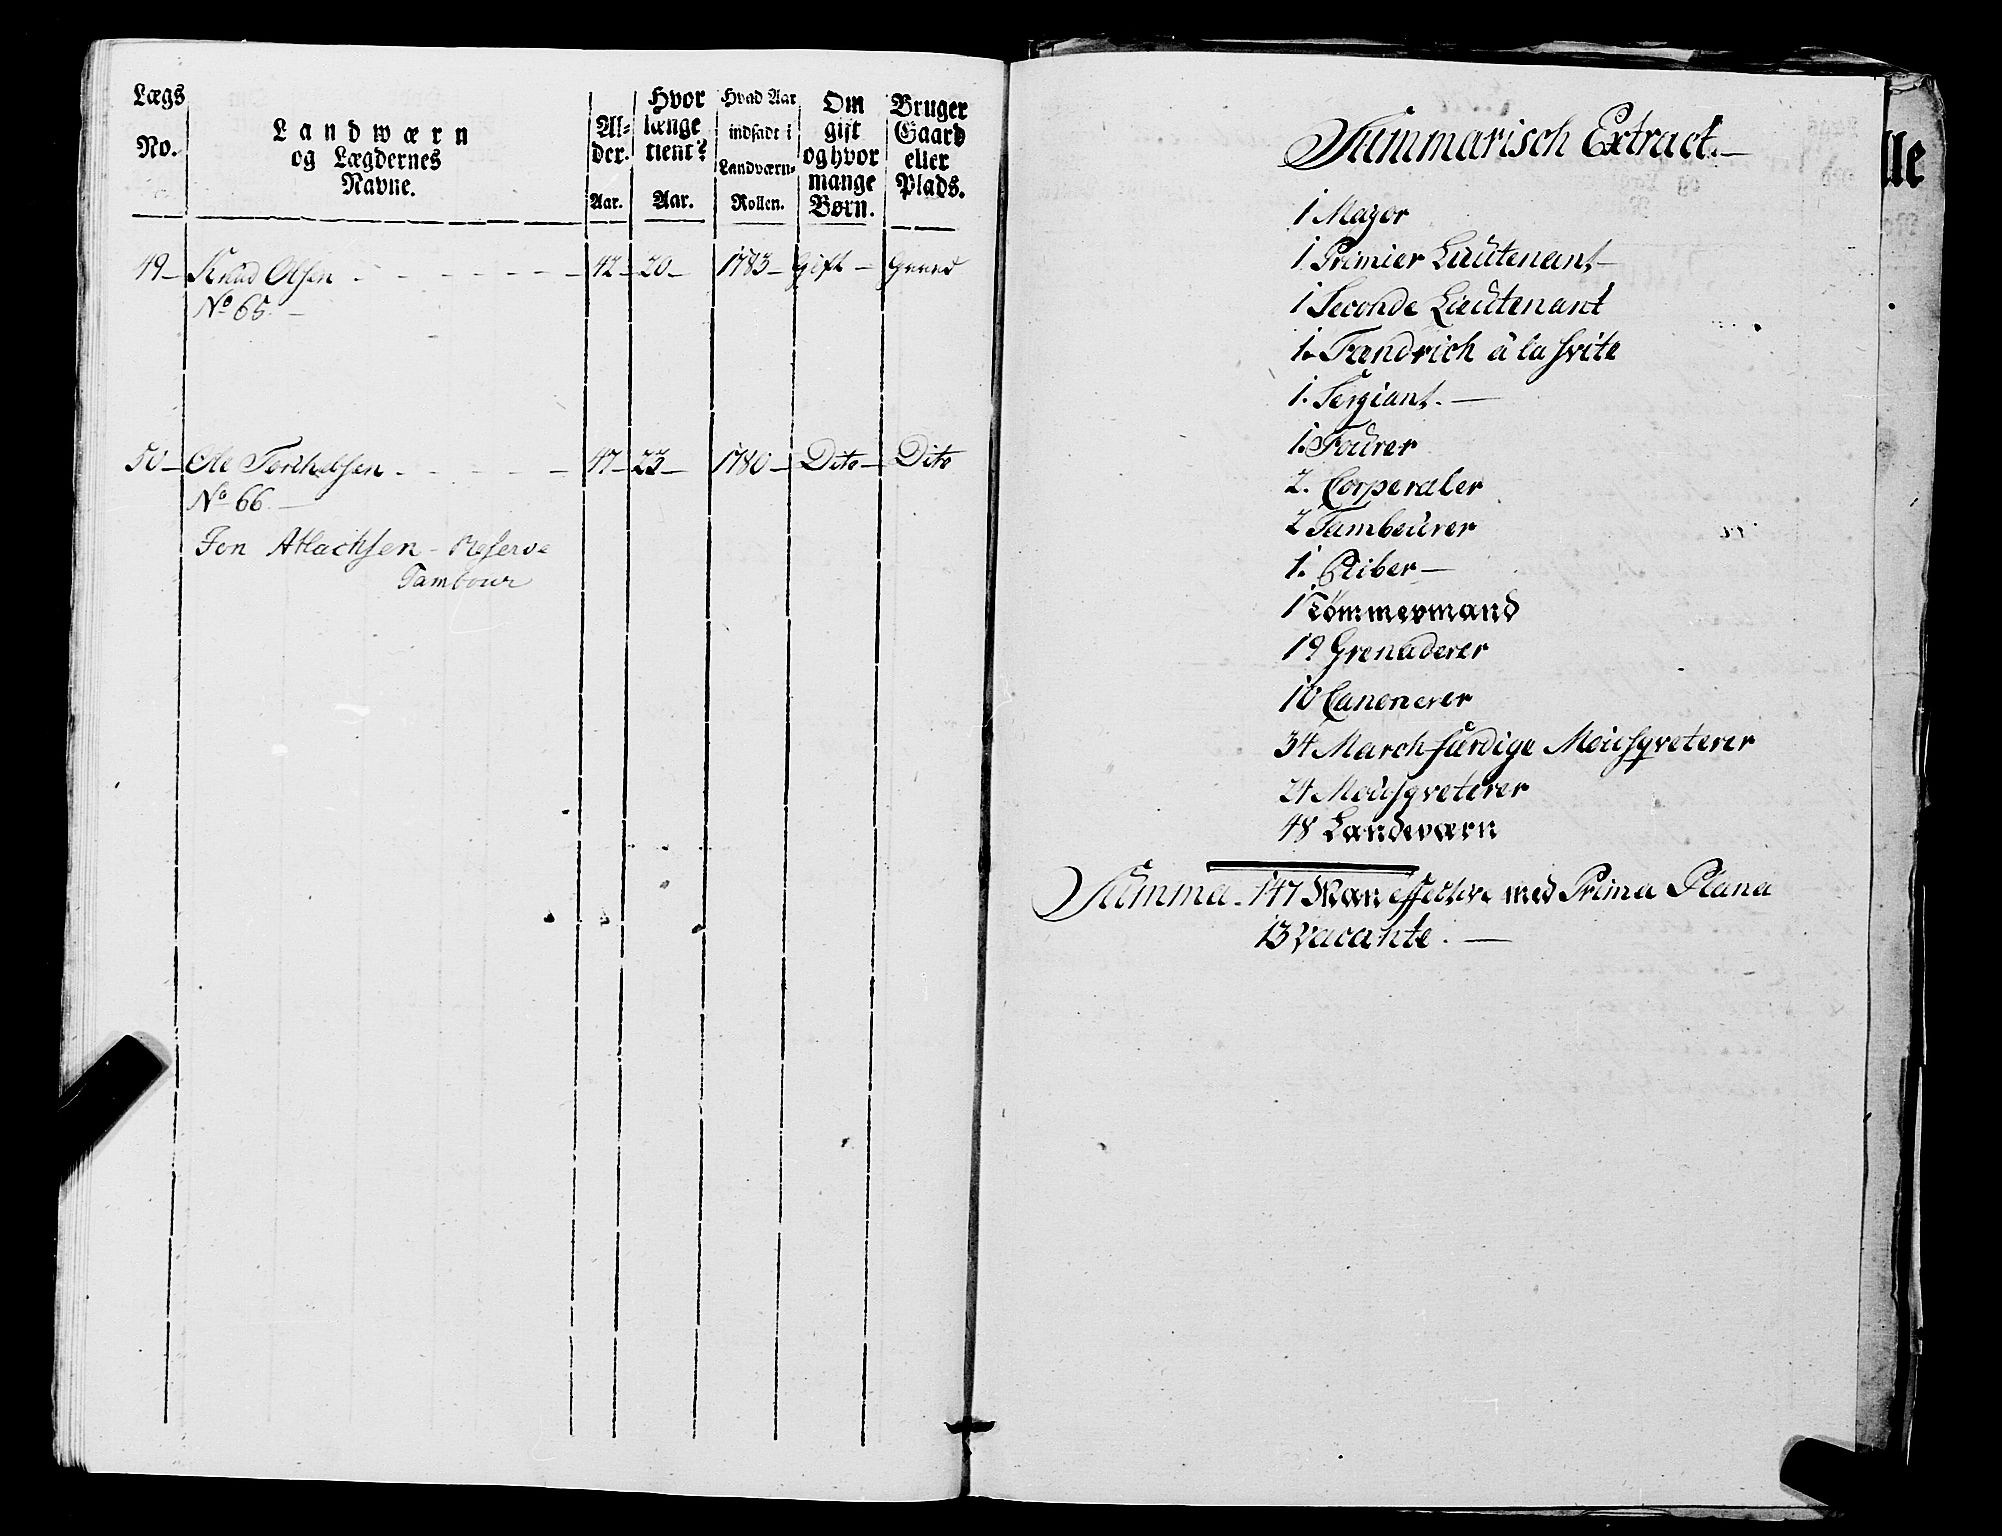 Lægs No.
Landwærn og Lægdernes Navne.
Al-der. Aar.
Hvor længe tient? Aar.
Hvad Aar indsadt i Landværn-Rollen.
Om gift og hvor mange Børn.
Bruger Gaard eller Plads.
49 - Knud Olsen - 42 - 20 - 1783 - Gift - Gaard
No 65. -
50 - Ole - 47 - 23 - 1780 - Dito - Dito
No 66. -
Jon - Reserve
Tambour
Summarisch Extract. -
1 Major
1 Premier Lieutenant -
1 Seconde Lieutenant
1. Fændrich à la Svite
1. Sergiant. -
1. Fourer
2. Corperaler
2 Tambourer
1. Piber -
1 Tømmermand
19 Grenaderer
10 Canonerer
34 Marchfærdige Mousqveterer
24 Mousqveterer
48 Landeværn
Summa. 147 Man effective med Prima Plana
13 Vacante. -
lle